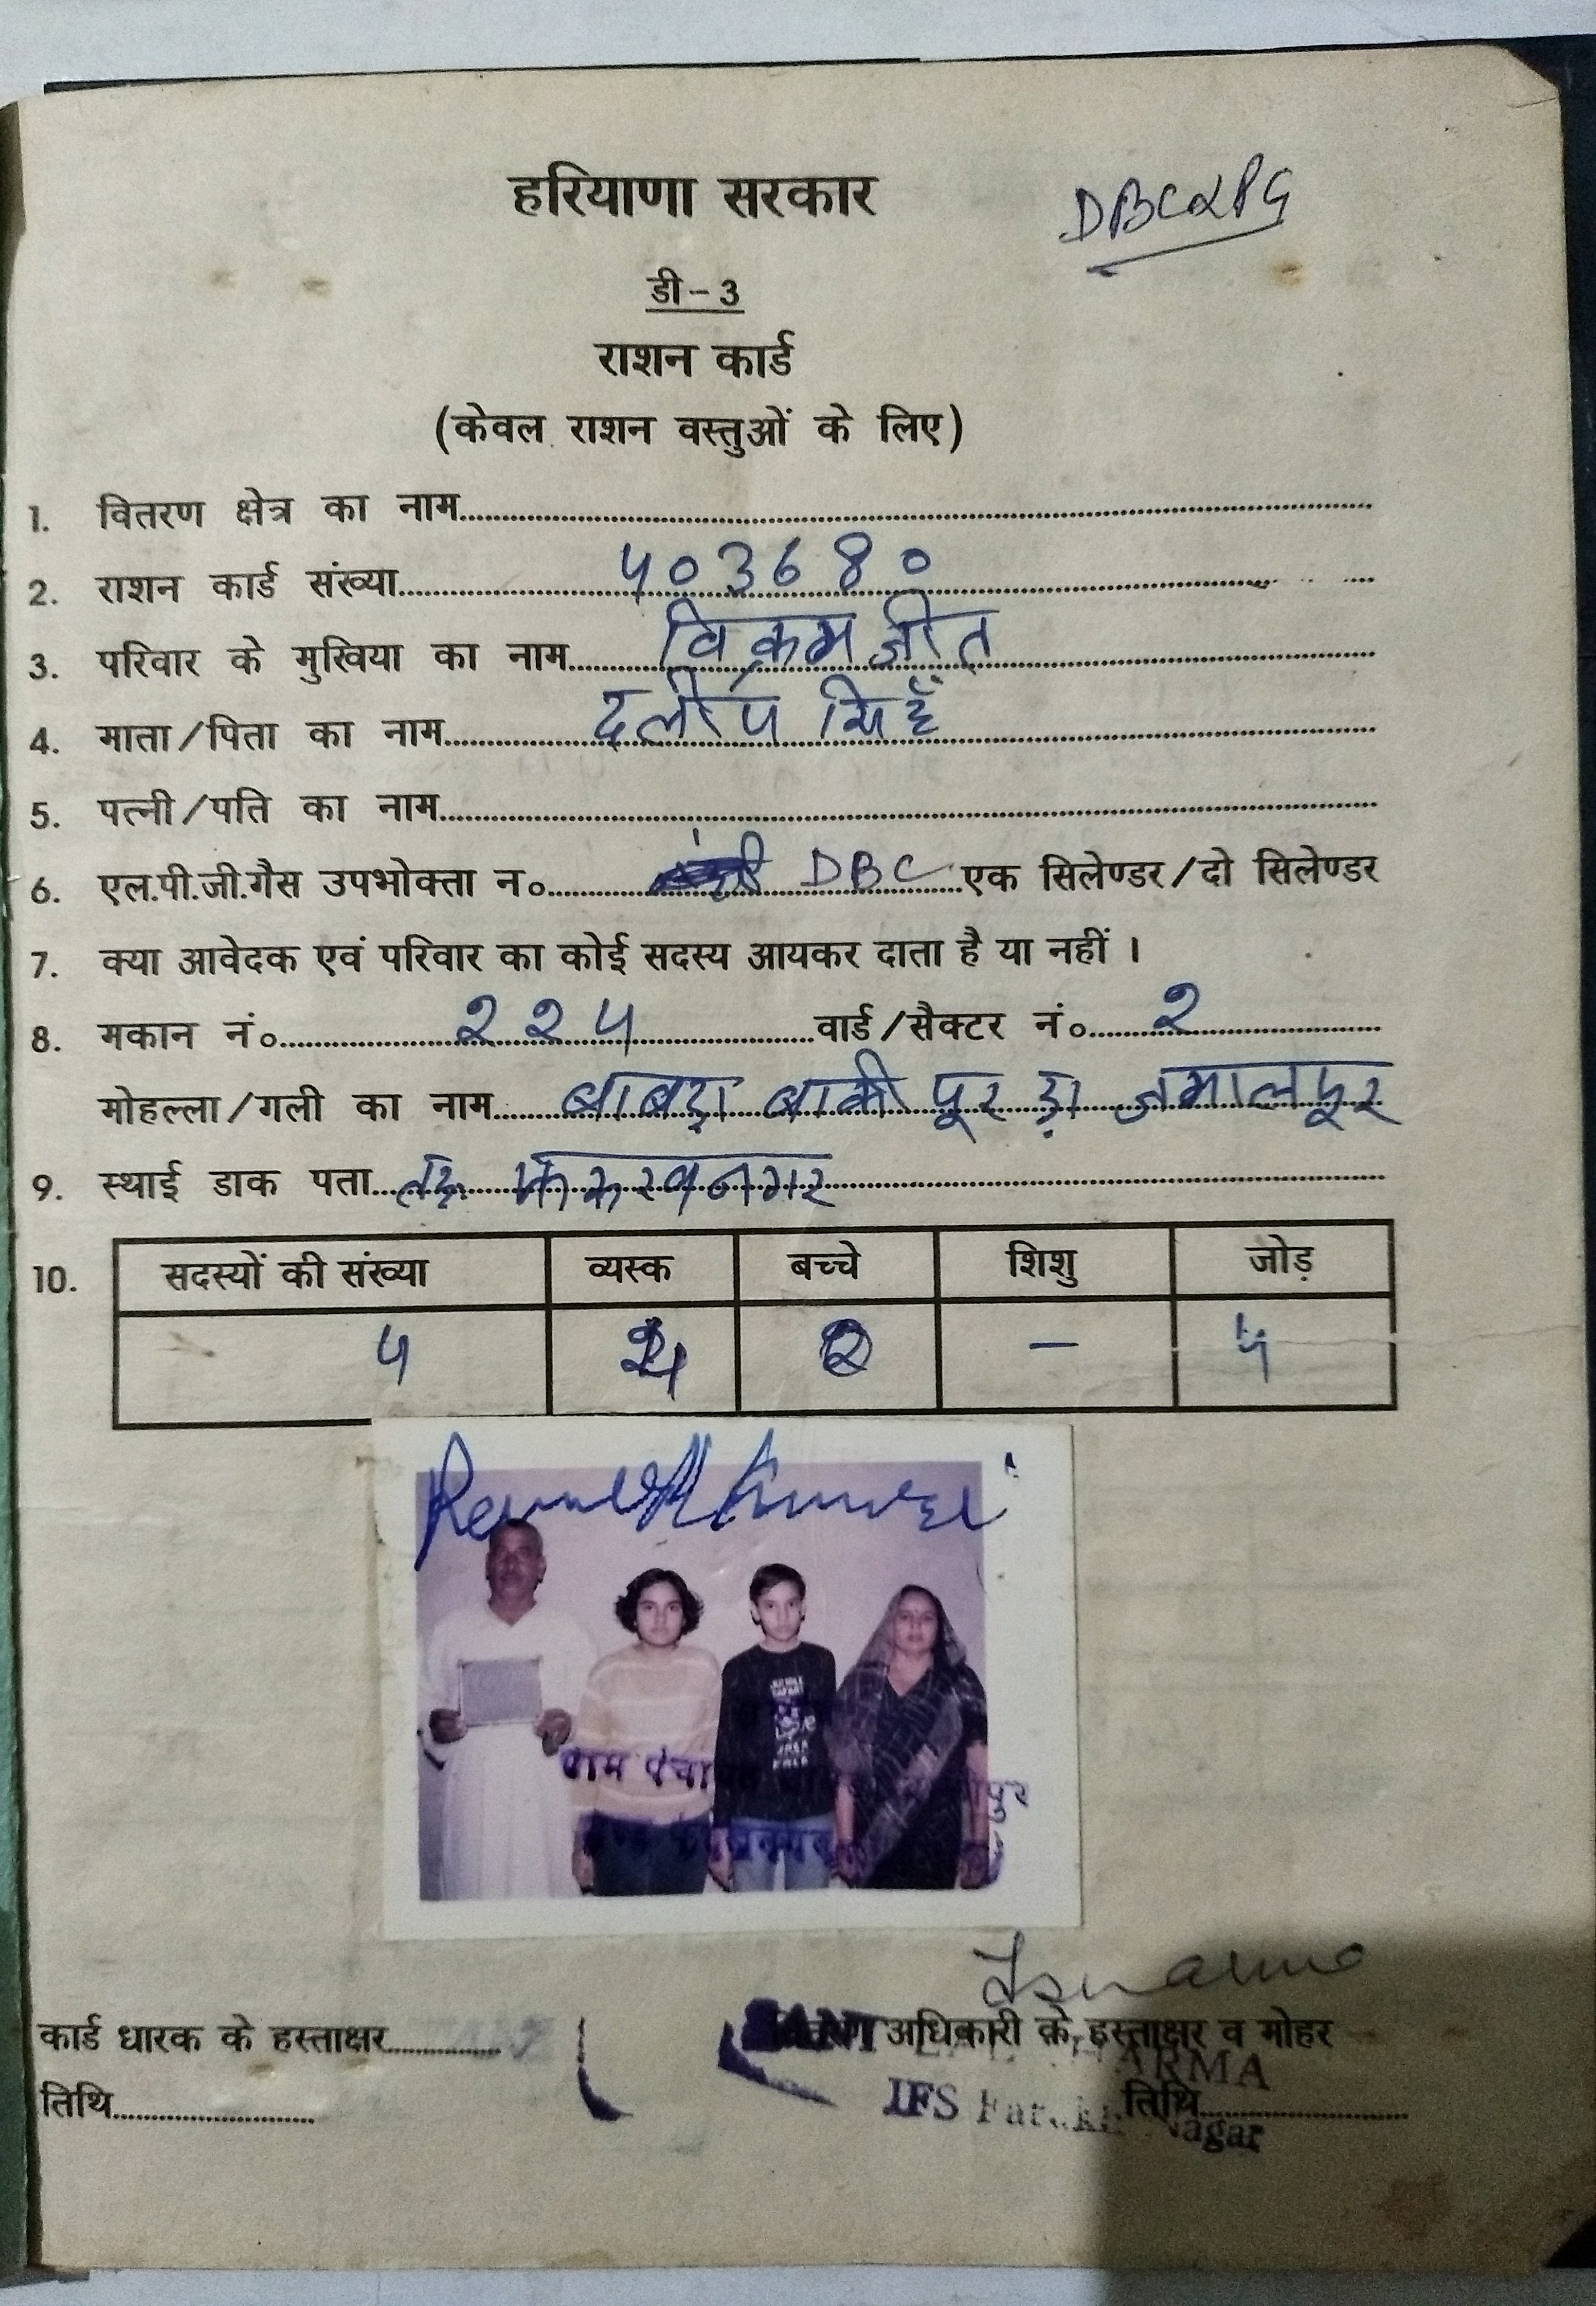 हरियाणा सरकार
DBC LPG
डी-3
राशन कार्ड
(केवल राशन वस्तुओं के लिए)
1. वितरण क्षेत्र का नाम
2. राशन कार्ड संख्या 403680
3. परिवार के मुखिया का नाम विक्रम जीत
4. माता/पिता का नाम दलीप सिहँ
5. पत्नी/पति का नाम
6. एल.पी.जी.गैस उपभोक्ता न० DBC एक सिलेण्डर/दो सिलेण्डर
7. क्या आवेदक एवं परिवार का कोई सदस्य आयकर दाता है या नहीं ।
8. मकान नं० २२५ वार्ड/सैक्टर नं० २
मोहल्ला/गली का नाम बाबड़ा बाकी पूर डा जमालपूर
9. स्थाई डाक पता
10. सदस्यों की संख्या व्यस्क बच्चे शिशु जोड़
५ २ – ५
ग्राम पंचा
पुर
कार्ड धारक के हस्ताक्षर अधिकारी के हस्ताक्षर व मोहर
SANT SHARMA
तिथि IFS तिथि
Nagar